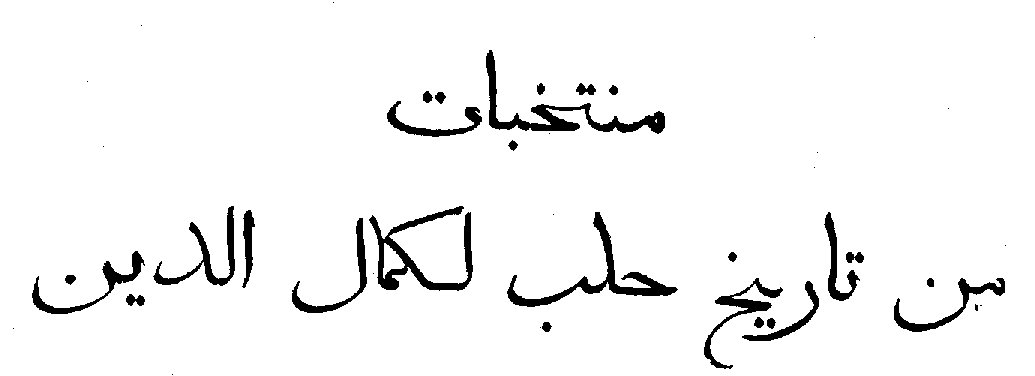 منتخبات
من تاريخ حلب لكمال الدين